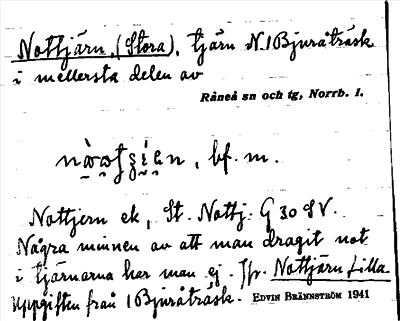 Nottjärn, (Stora), tjärn N. 1 Bjuråträsk
i mellersta delen av
Råneå sn och tg, Norrb. l.
bf. m.
Nottjern ek, St. Nottj. G 30 SV.
Några minnen av att man dragit not
i tjärnarna har man ej. Jfr. Nottjärn Lilla
Uppgiften från 1 Bjuråträsk. EDVIN BRÄNNSTRÖM 1941